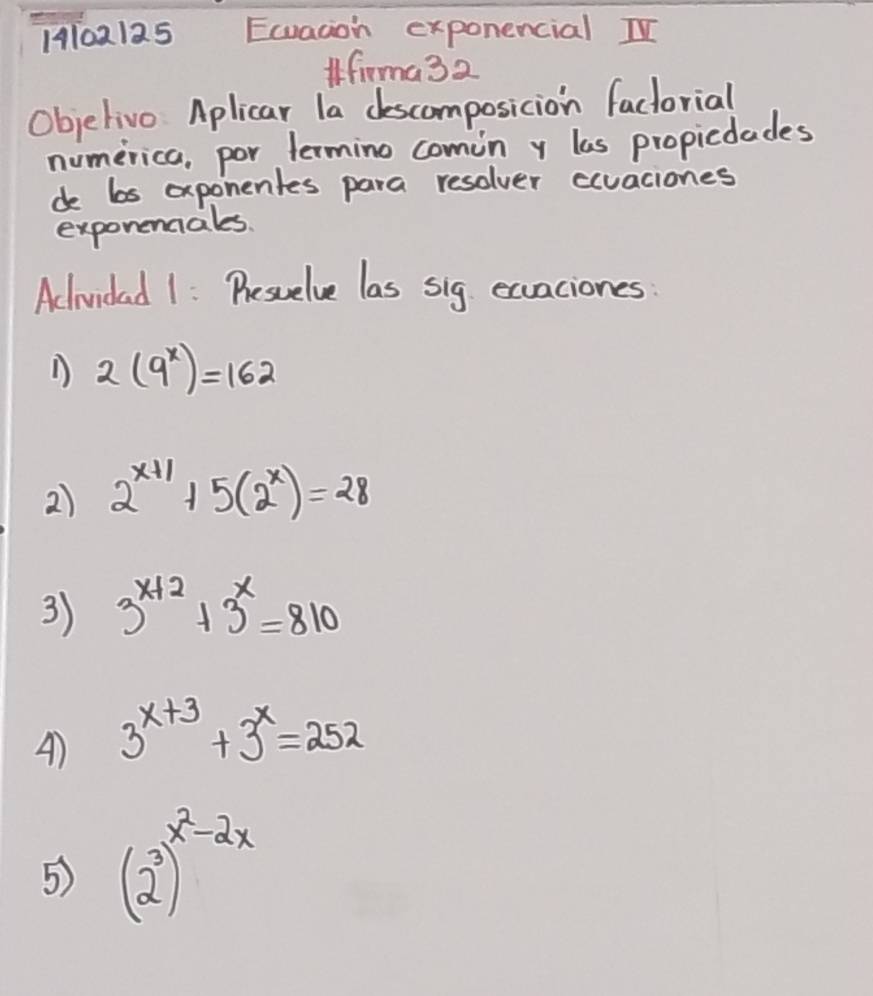 14/02/25 Ecuación exponencial IV
#firma 32
Objetivo Aplicar la descomposición factorial
numérica, por termino común y las propiedades
de los exponentes para resolver ecuaciones
exponenciales.
Actividad 1: Resuelve las sig. ecuaciones:
1) 2(9^x)=162
2) 2^{x+1}+5(2^x)=28
3) 3^{x+2}+3^x=810
4) 3^{x+3}+3^x=252
5) (2^3)^{x^2-2x}